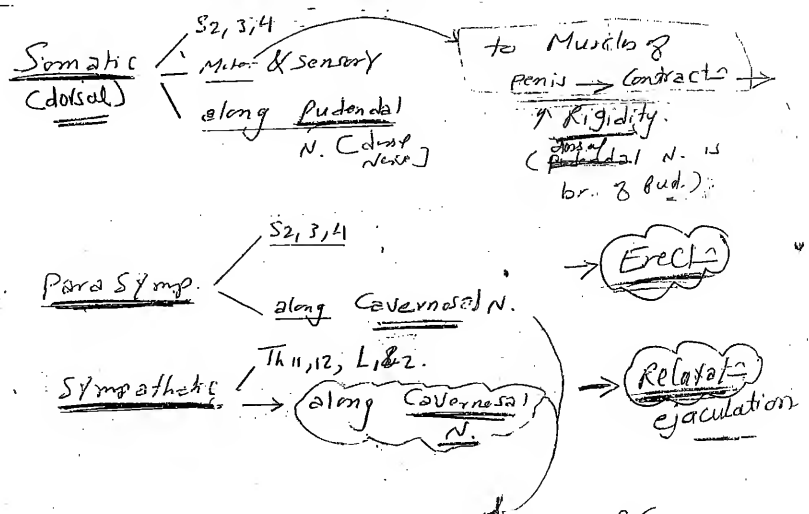 S2, 3, 4
Somatic
(dorsal)
Motor & Sensory
along Pudendal
N. [dorsal Nerve]
to Muscles of
penis → Contractn →
↑ Rigidity.
(dorsal N. is
br. of Pud.)
S2, 3, 4
Para Symp.
along Cavernosal N.
→ Erectn
Sympathetic
Th 11, 12, L1 & 2.
→ along Cavernosal
N.
→ Relaxatn
ejaculation